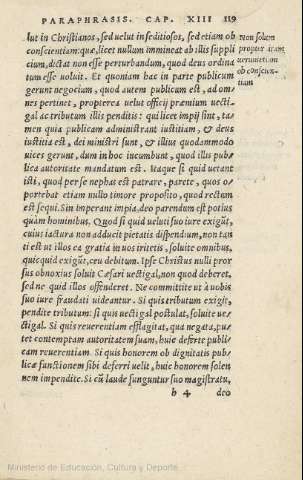 PARAPHRASIS. CAP. XIII 119
lut in Christianos, sed uelut in seditiosos, sed etiam ob
conscientiam: quæ, licet nullum immineat ab illis suppli
cium, dictat non esse perturbandum, quod deus ordina
tum esse uoluit. Et quoniam hac in parte publicum
gerunt negocium, quod autem publicum est, ad om⸗
nes pertinet, propterea uelut officij præmium uecti⸗
gal ac tributum illis penditis: qui licet impij sint, ta⸗
men quia publicam administrant iustitiam, & deus
iustitia est, dei ministri sunt, & illius quodammodo
uices gerunt, dum in hoc incumbunt, quod illis pub⸗
lica autoritate mandatum est. Itaque si quid uetant
isti, quod per se nephas est patrare, parete, quos o⸗
portebat etiam nullo timore proposito, quod rectum
est sequi. Sin imperant impia, deo parendum est potius
quàm hominibus. Quod si quid ueluti suo iure exigũt,
cuius iactura non adducit pietatis dispendium, non tan
ti est ut illos ea gratia in uos irritetis, soluite omnibus,
quicquid exigũt, ceu debitum. Ipse Christus nulli pror
sus obnoxius soluit Cæsari uectigal, non quod deberet,
sed ne quid illos offenderet. Ne committite ut à uobis
suo iure fraudati uideantur. Si quis tributum exigit,
pendite tributum: si quis uectigal postulat, soluite ue⸗
ctigal. Si quis reuerentiam efflagitat, qua negata, pu⸗
tet contemptam autoritatem suam, huic deferte publi⸗
cam reuerentiam. Si quis honorem ob dignitatis pub⸗
licæ functionem sibi deferri uelit, huic honorem solen
nem impendite. Si cũ laude funguntur suo magistratu,
h 4 deo
Non solum
propter iram
uerumetiam
ob conscien⸗
tiam
Ministerio de Educación, Cultura y Deporte